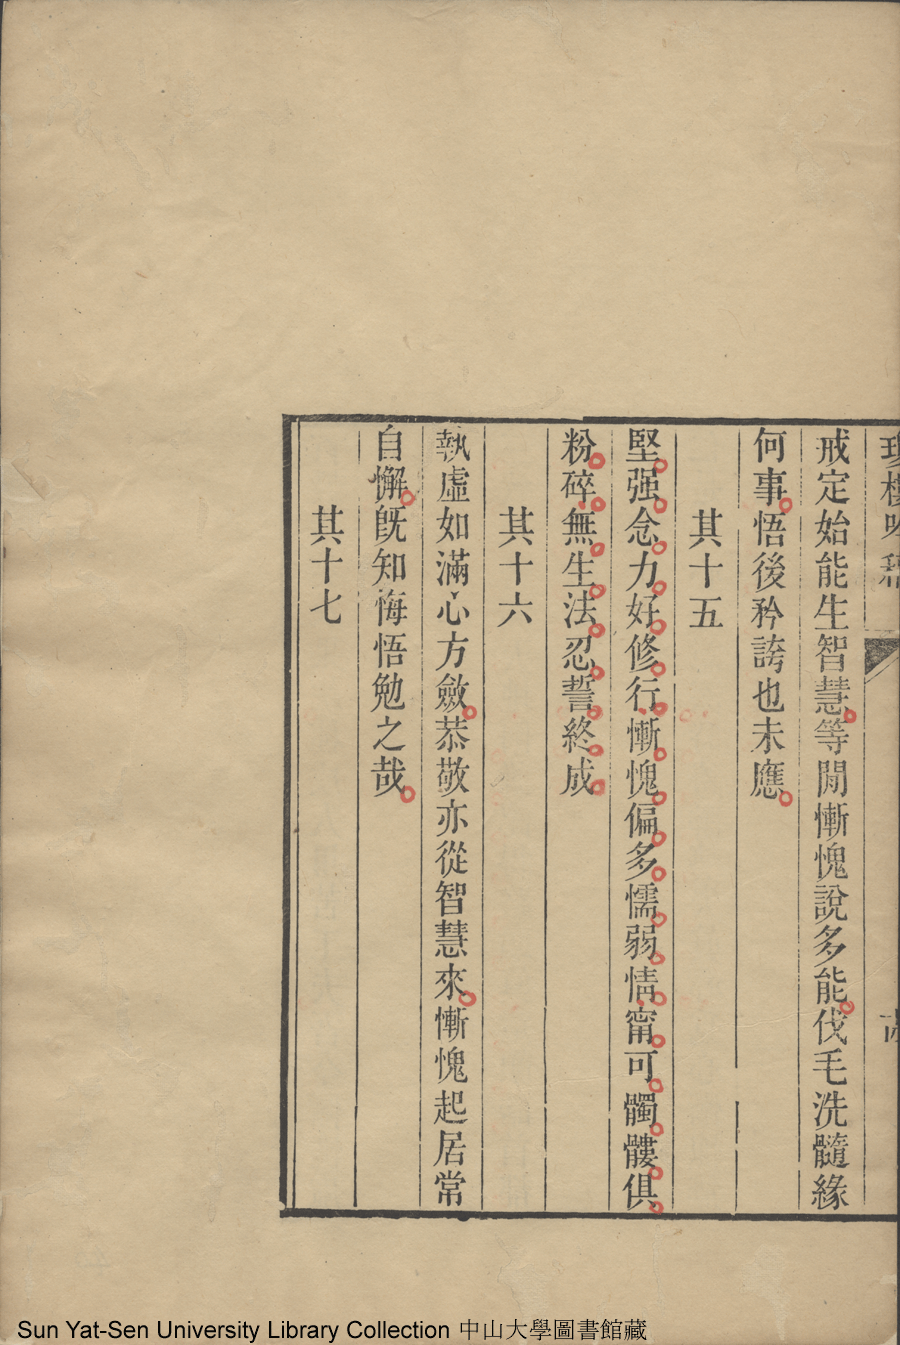 戒定始能生智慧等閒慚愧說多能伐毛洗髓緣
何事悟後矜誇也未應
其十五
堅强念力好修行慚愧偏多懦弱情甯可髑髏俱
粉碎無生法忍誓終成
其十六
執虛如滿心方斂恭敬亦從智慧來慚愧起居常
自懈旣知悔悟勉之哉
其十七
Sun Yat-Sen University Library Collection 中山大學圖書館藏